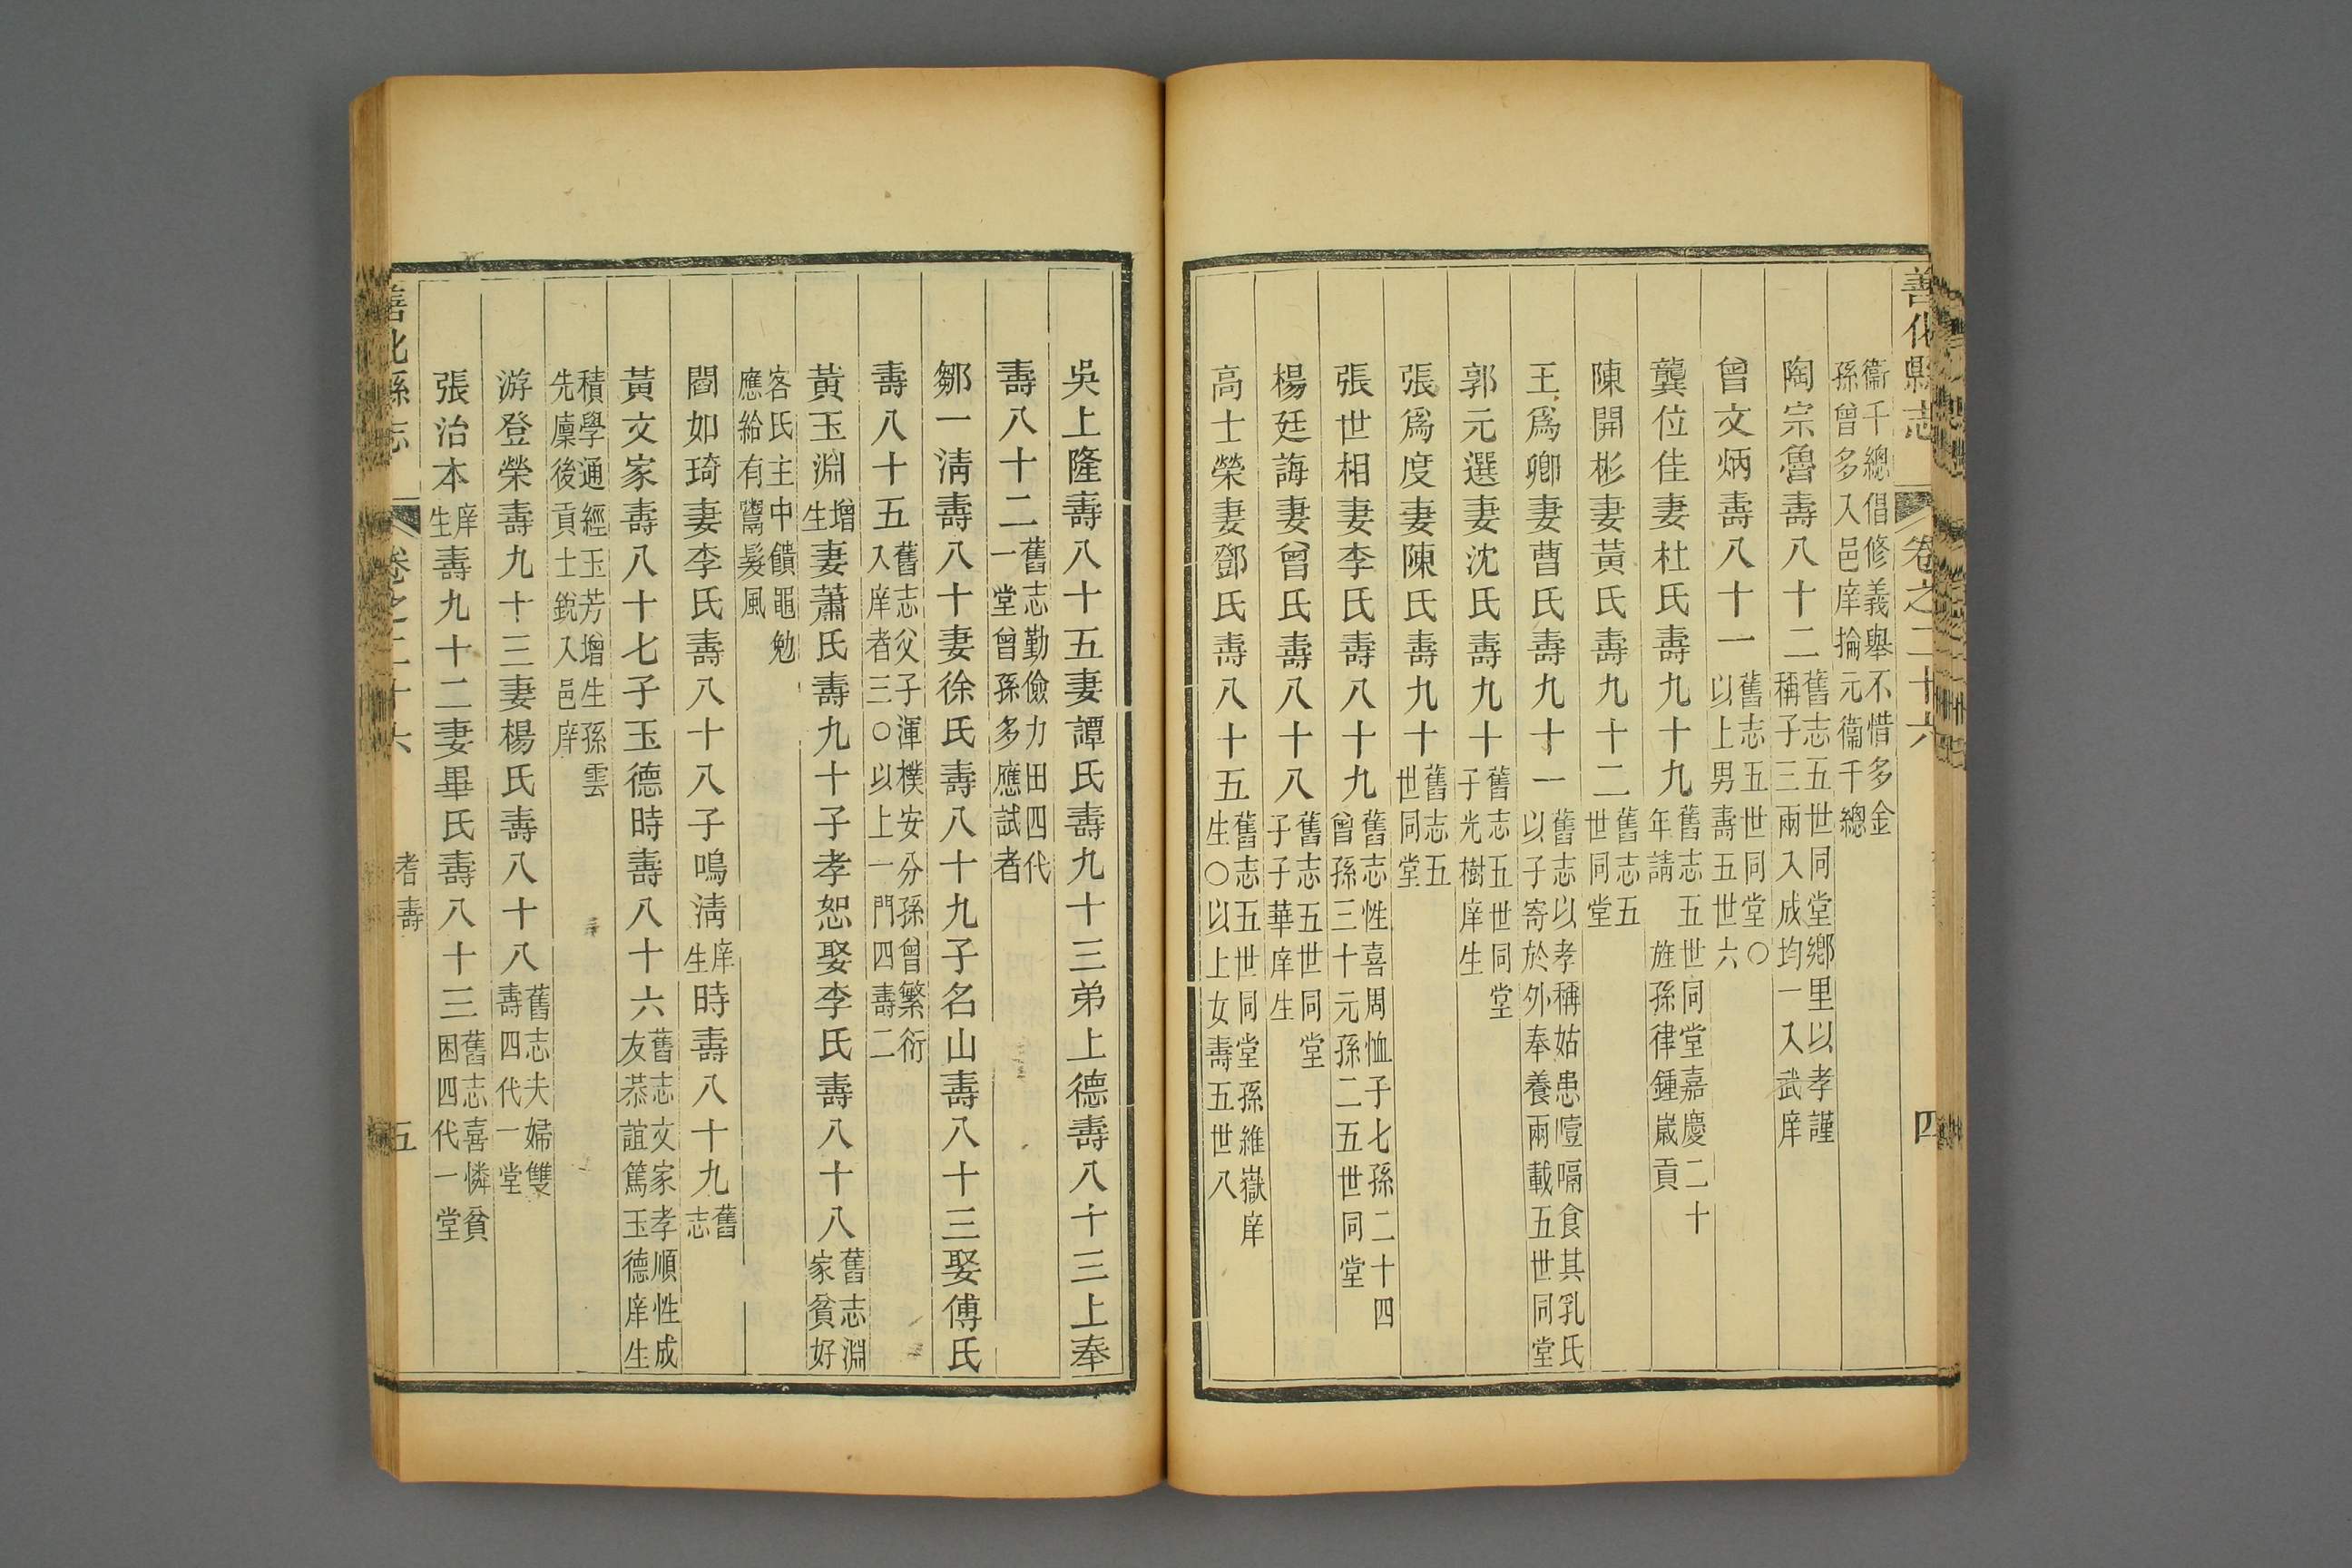 善化縣志 卷之二十六 四
衞千總倡修義舉不惜多金
孫曾多入邑庠掄元衞千總
陶宗魯壽八十二舊志五世同堂鄉里以孝謹
稱子三兩入成均一入武庠
曾文炳壽八十一舊志五世同堂○
以上男壽五世六
龔位佳妻杜氏壽九十九舊志五世同堂嘉慶二十
年請 旌孫律鍾嵗貢
陳開彬妻黃氏壽九十二舊志五
世同堂
王爲卿妻曹氏壽九十一舊志以孝稱姑患噎嗝食其乳氏
以子寄於外奉養兩載五世同堂
郭元選妻沈氏壽九十舊志五世同堂
子光樹庠生
張爲度妻陳氏壽九十舊志五
世同堂
張世相妻李氏壽八十九舊志性喜周恤子七孫二十四
曾孫三十元孫二五世同堂
楊廷誨妻曾氏壽八十八舊志五世同堂
子子華庠生
高士榮妻鄧氏壽八十五舊志五世同堂孫維嶽庠
生○以上女壽五世八
吳上隆壽八十五妻譚氏壽九十三弟上德壽八十三上奉
壽八十二舊志勤儉力田四代
一堂曾孫多應試者
鄒一淸壽八十妻徐氏壽八十九子名山壽八十三娶傅氏
壽八十五舊志父子渾樸安分孫曾繁衍
入庠者三○以上一門四壽二
黃玉淵增
生妻蕭氏壽九十子孝恕娶李氏壽八十八舊志淵
家貧好
客氏主中饋黽勉
應給有鬻髮風
閻如琦妻李氏壽八十八子鳴淸庠
生時壽八十九舊
志
黃文家壽八十七子玉德時壽八十六舊志文家孝順性成
友恭誼篤玉德庠生
積學通經玉芳增生孫雲
先廩後貢士銳入邑庠
游登榮壽九十三妻楊氏壽八十八舊志夫婦雙
壽四代一堂
張治本庠
生壽九十二妻畢氏壽八十三舊志喜憐貧
困四代一堂
善化縣志 卷之二十六 耆壽 五